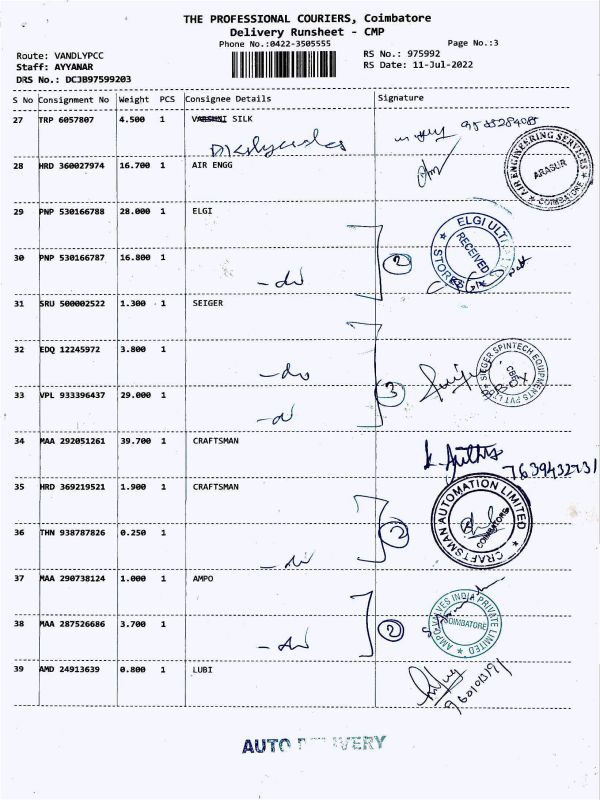 THE PROFESSIONAL COURIERS, Coimbatore
Delivery Runsheet - CMP
Phone No.:0422-3505555
Page No.:3
Route: VANDLYPCC
Staff: AYYANAR
DRS No.: DCJB97599203
RS No.: 975992
RS Date: 11-Jul-2022
S No Consignment No Weight PCS Consignee Details Signature
27 TRP 6057807 4.500 1 SILK
28 HRD 360027974 16.700 1 AIR ENGG
AIR ENGINEERING SERVICES ARASUR COIMBATORE
29 PNP 530166788 28.000 1 ELGI
30 PNP 530166787 16.800 1
-do 2
ELGI ULTRA RECEIVED STORES
31 SRU 500002522 1.300 1 SEIGER
32 EDQ 12245972 3.800 1
-do
33 VPL 933396437 29.000 1
-do 3
SIEGER SPINTECH EQUIPMENTS PVT LTD CBE
34 MAA 292051261 39.700 1 CRAFTSMAN
7639432731
35 HRD 369219521 1.900 1 CRAFTSMAN
36 THN 938787826 0.250 1
-do 2
CRAFTSMAN AUTOMATION LIMITED COIMBATORE
37 MAA 290738124 1.000 1 AMPO
38 MAA 287526686 3.700 1
-do 2
AMPO VALVES INDIA PRIVATE LIMITED COIMBATORE
39 AMD 24913639 0.800 1 LUBI
AUTO DELIVERY